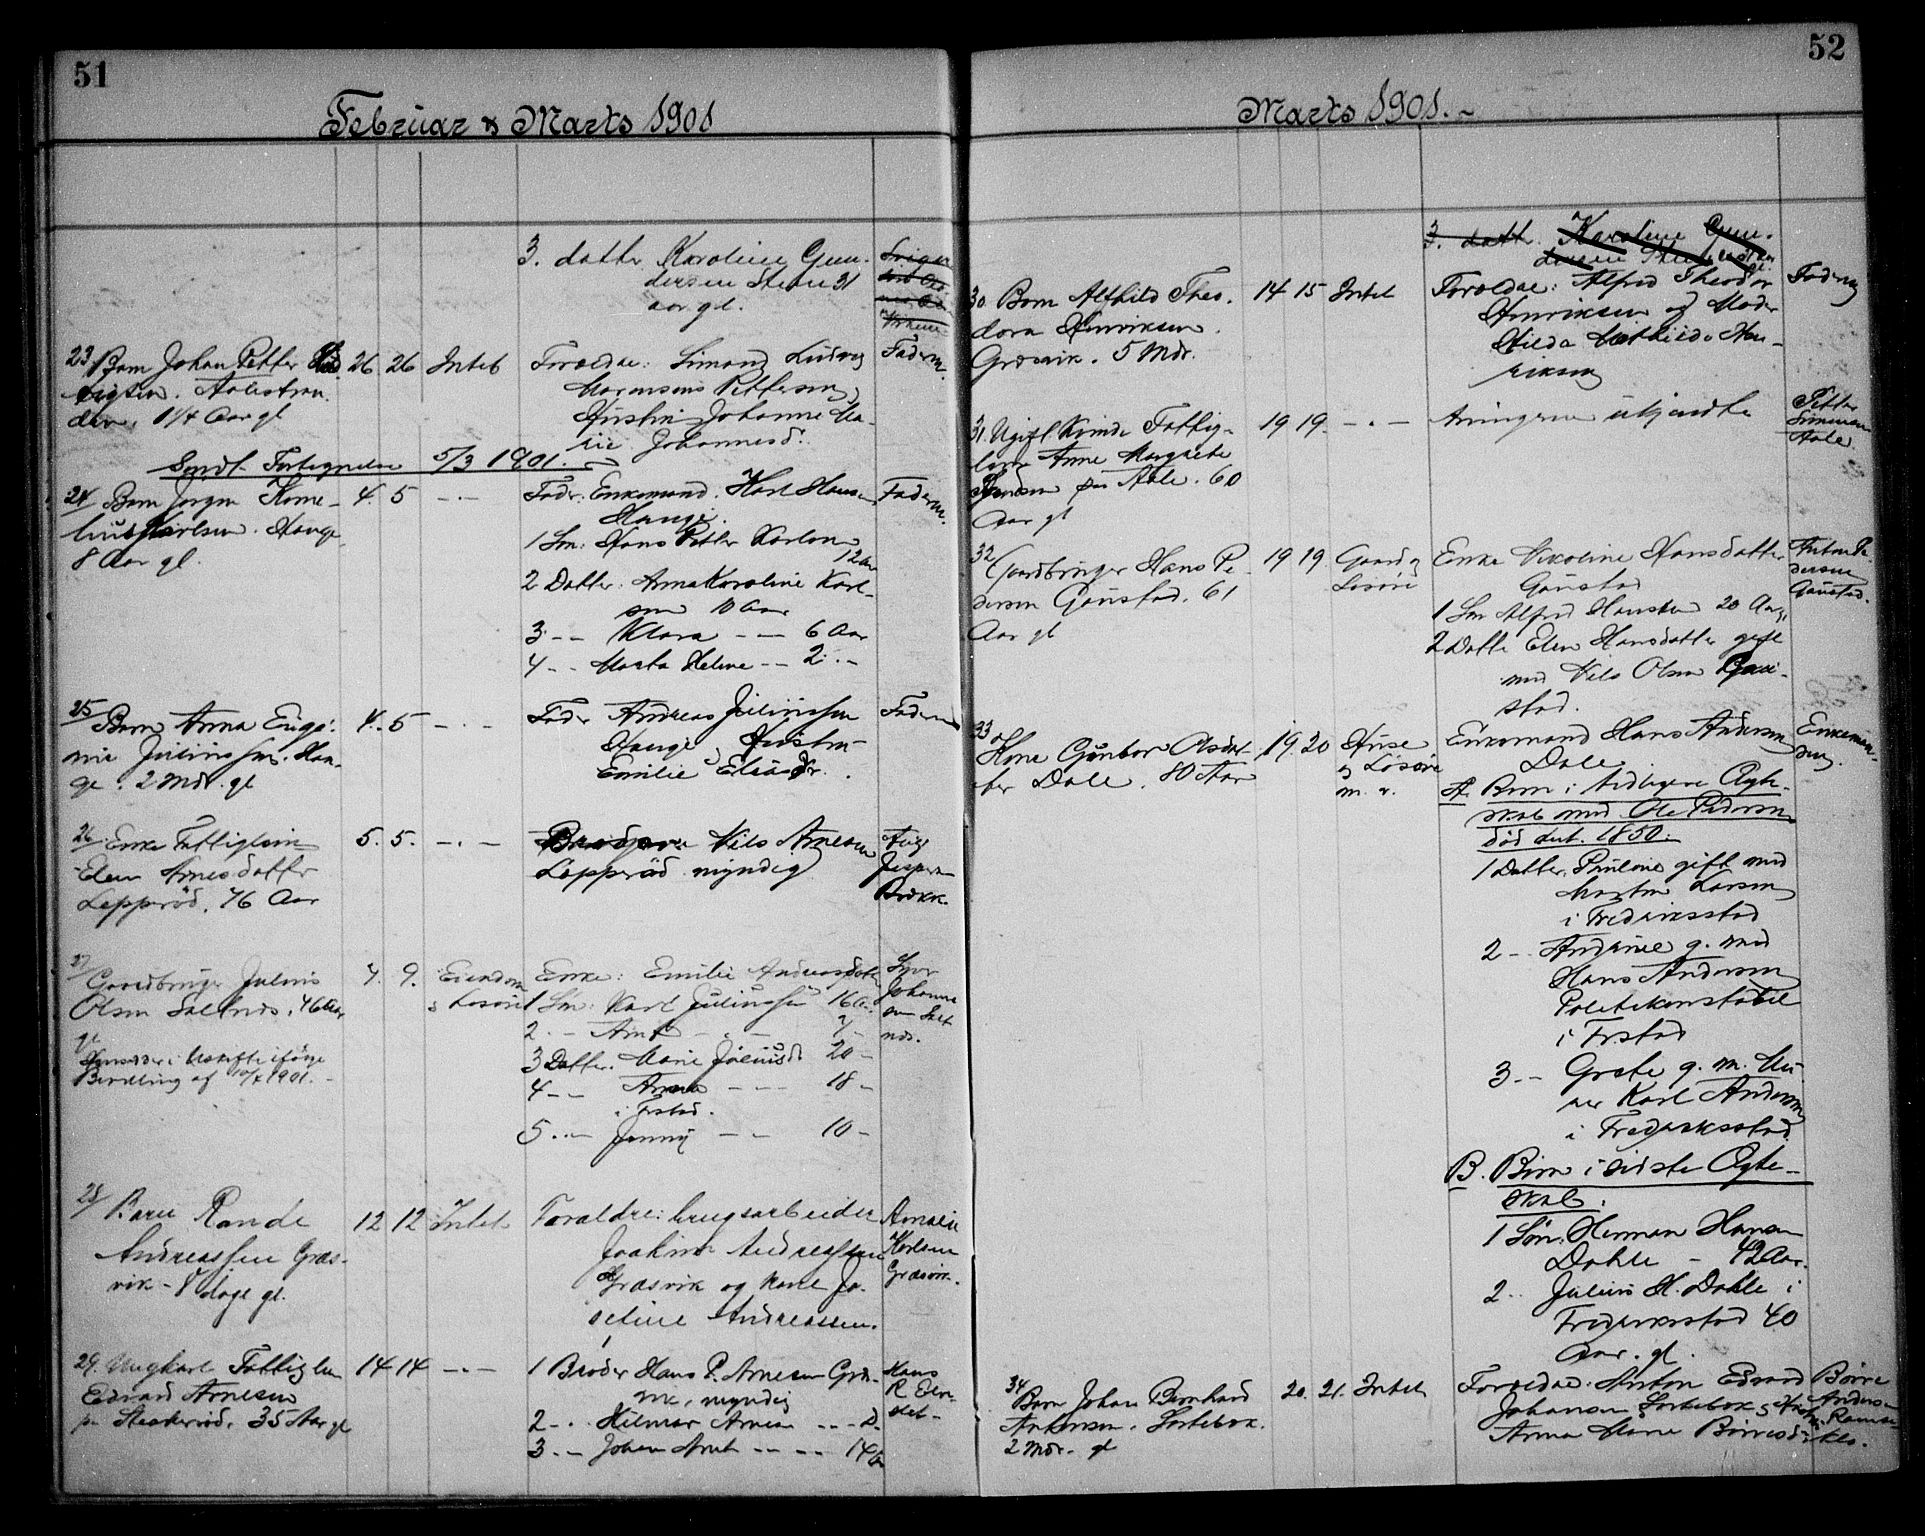 51
Februar & Marts 1901
3. datter Karoline Gun-
dersen Stene 31
aar gl.
23 Barn Johan Petter Lud-
vigsen. Aalestran-
den, 1 1/4 Aar gl
26. 26 Intet
Forældre: Simond Ludvig
Petterson,
Hustru Johanne Ma-
rie Johannesd.
Faderen.
Sendt Fortegnelse 5/3 1901.
24/ Barn Jørgen Korne-
lius Karlsen. Hauge,
8 Aar gl.
4. 5 - . -
Fader: Enkemand. Karl Hansen
Hauge.
1 Søn: Hans Petter Karlsen
12 Aar
2 Datter. Anna Karoline Karl-
sen 10 Aar
3 - - Klara - - 6 Aar
4 - - Marta Helene - - 2 - -
Faderen.
25/ Barn Anna Euge-
nie Juliussen. Hau-
ge. 2 Mdr. gl
4. 5 - . -
Fader Andreas Juliussen
Hauge, Hustru
Emilie Eliasdr.
Faderen
26/ Enke Fattiglem
Elen Arnesdatter
Lepperød, 76 Aar
5. 5. - . -
Nils Arnesen
Lepperød myndig
Aug
Jespersen
Brekke.
27/
Gaardbruger Julius
Olsen Saltnes, 46 Aar
gl
Hensidder i Uskifte ifølge
Bevilling af 10/4 1901. -
7. 9. Eiendom
& Løsøre
Enke: Emilie Andreasdatter
1 Søn: Karl Juliussen 16 Aar
2 - - Arnt - - 7 -
3 Datter. Marie Juliusd 20 -
4 - - Anna - - 18 -
i Frstad.
5 - - Jenny - - 10 -
Svor
Johanne-
sen Salt-
nes.
28/ Barn Rande
Andreassen Græs-
vik - 8 dage gl.
12 12 Intet
Forældre: brugsarbeider
Joakim Andreassen
Græsvik og kone Jo-
sefine Andreassen.
Amalie
Karlsen
Græsvik.
29. Ungkarl Fattiglem
Edvard Arnesen
35 Aar gl
14 14 - . -
1 Broder Hans P. Arnesen Græs-
myndig
2 - . Hilmar Arnesen - - - D.
3 - - Johan Arnt - - - - 14
Hans
52
Marts 1901. -
3. datter Karoline Gun-
dersen Stene 31 aar
gl.
30 Barn Alfhild Theo-
dora Henriksen.
Græsvik. 5 Mdr.
14 15 Intet
Forældre: Alfred Theodor
Henriksen og Moder
Hilda Mathilda Hen-
riksen
Faderen
31. Ugift Kvinde Fattig-
lem Anne Margrete
paa Aale. 60
Aar gl
19 19. - . -
Arvingerne ukjendte
Petter
Simensen
Aale.
32/
Gaardbruger Hans Pe-
dersen Gaustad. 61
Aar gl
19 19. Gaard og
Løsøre
Enke Nikoline Hansdatter
Gaustad
1 Søn Alfred Hansen 20 Aar
2 Datter Elen Hansdatter gift
med Nils Olsen Gau-
stad.
Anton Pe-
dersen
Gaustad.
33/
Kone Gunbor Olsdat-
ter Dale. 80 Aar
19. 20 Huse
og Løsøre
m. v.
Enkemand Hans Andersen
Dale
A. Børn i tidligere Ægte-
skab med Ole Pedersen
død aut. 1850.
1 Datter. Pauline gift med
Morten Larsen
i Fredriksstad
2 - Andrine g. med
Hans Andersen
Politikonstabel
i Frstad
3 - - Grete g. m. Mu-
rer Karl Andersen
i Fredriksstad
B. Børn i sidste Ægte-
skab:
1 Søn. Herman Hansen
Dahle - 42 Aar.
2 - Julius H. Dahle i
Fredriksstad 40
Aar. gl.
Enkeman-
den.
34/
Barn Johan Bernhard
Antonsen, Sortebæk.
2 Mdr. gl
20. 21. Intet
Forældre: Anton Edvard
Johansen Sortebæk & Hustru
Anna Marie Børresd.
Børre
Andersen